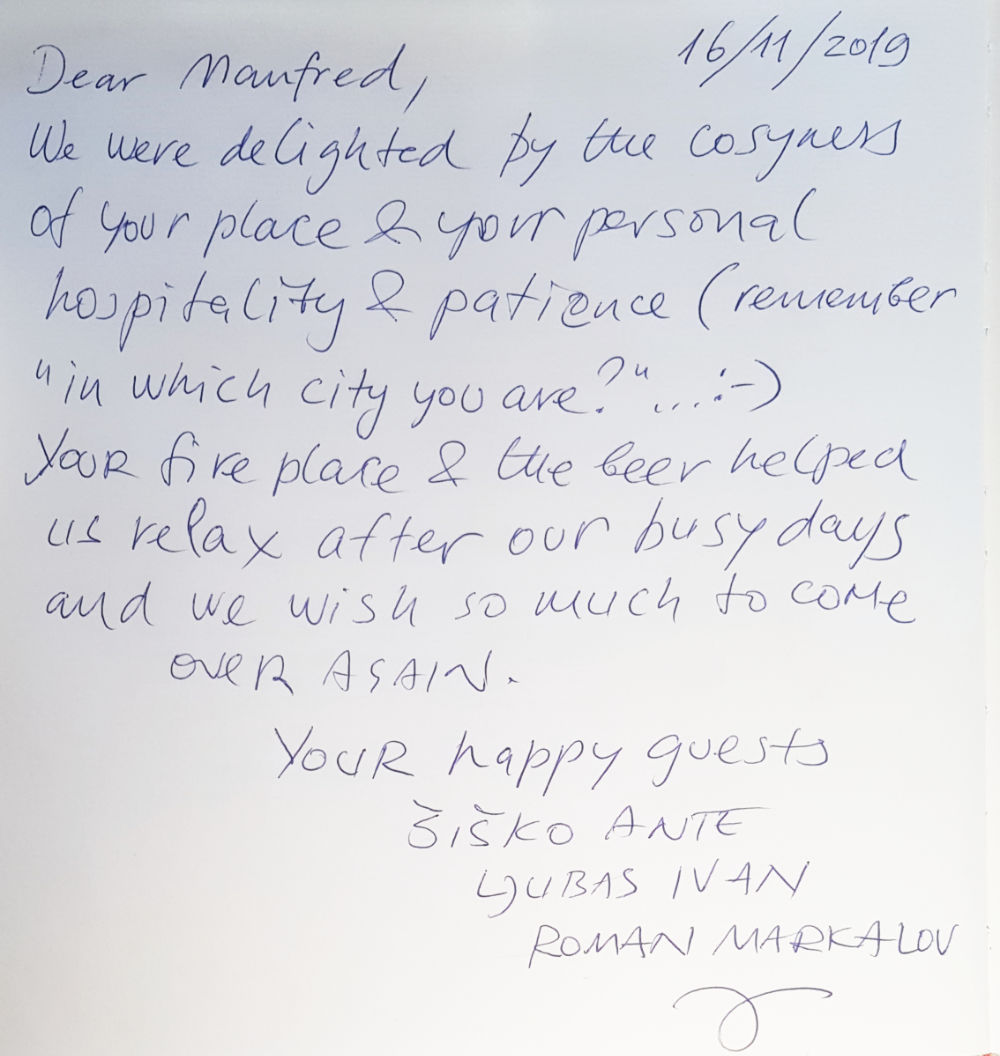 16/11/2019
Dear Manfred,
We were delighted by the cosyness
of your place & your personal
hospitality & patience (remember
"in which city you are?"...:-)
YOUR fire place & the beer helped
us relax after our busy days
and we wish so much to come
OVER AGAIN.
YOUR happy guests
ŠIŠKO ANTE
LJUBAS IVAN
ROMAN MARKALOV